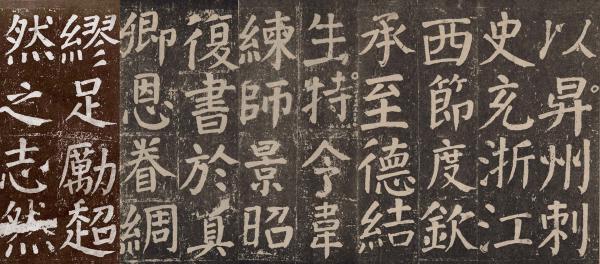 以昇州刺
史充浙江
西節度欽
承至德結
生特令韋
練師景昭
復書於真
卿恩眷綢
繆足勵超
然之志然